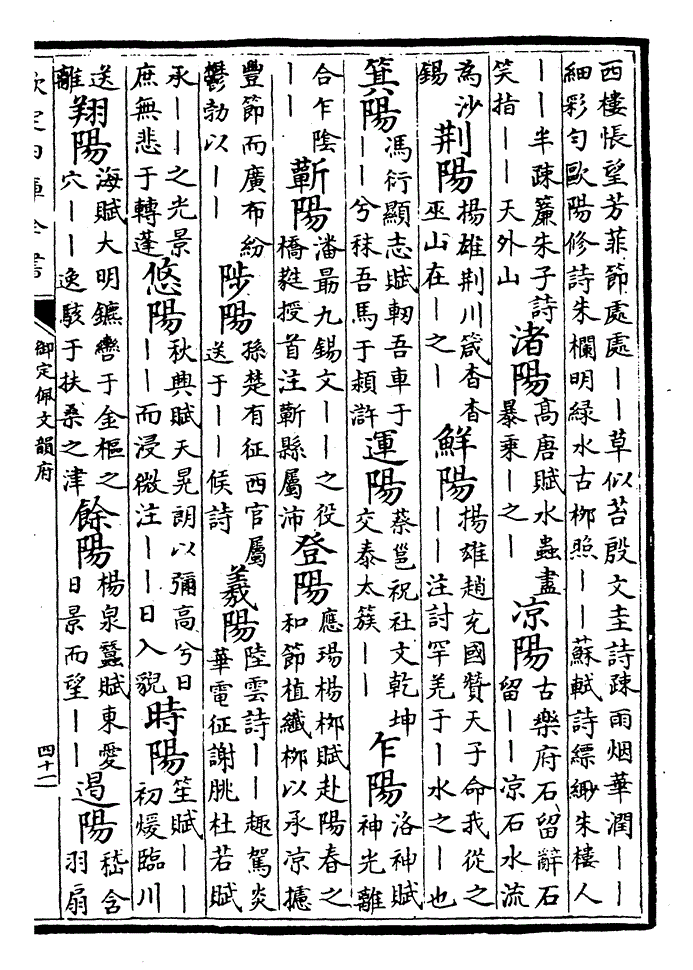 西樓悵望芳菲節處處――草似苔殷文圭詩疎雨烟華潤――
細彩勻歐陽修詩朱欄明綠水古柳照――蘇軾詩縹緲朱樓人
――半疎簾朱子詩
笑指――天外山
渚陽
高唐賦水蟲盡
暴乘―之―
凉陽
古樂府石留辭石
留――凉石水流
為沙
錫
荆陽
揚雄荆川箴杳杳
巫山在―之―
鮮陽
揚雄趙充國贊天子命我從之
――注討罕羌于―水之―也
箕陽
馮衍顯志賦軔吾車于
――兮秣吾馬于潁滸
運陽
蔡邕祝社文乾坤
交泰太簇――
乍陽
洛神賦
神光離
合乍陰
――
蘄陽
潘朂九錫文――之役
橋蕤授首注蘄縣屬沛
登陽
應瑒楊柳賦赴陽春之
和節植纖柳以承凉攄
豐節而廣布紛
鬱勃以――
陟陽
孫楚有征西官屬
送于――候詩
羲陽
陸雲詩――趣駕炎
華電征謝朓杜若賦
承――之光景
庶無悲于轉蓬
悠陽
秋興賦天晃朗以彌高兮日
――而浸微注――日入貌
時陽
笙賦――
初煖臨川
送
離
翔陽
海賦大明鑣轡于金樞之
穴――逸駭于扶桑之津
餘陽
楊泉蠶賦東愛
日景而望――
遏陽
嵇含
羽扇
欽定四庫全書
御定佩文韻府
四十一